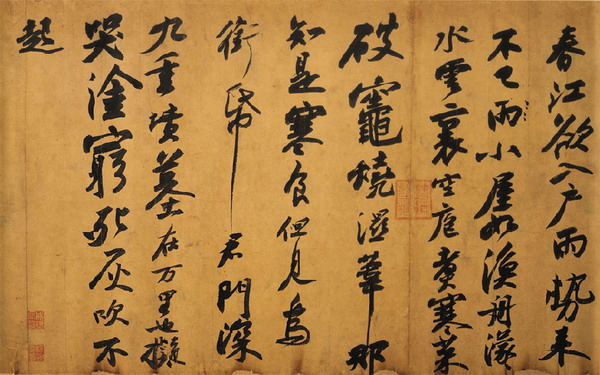 春江欲入戶雨勢來
不已雨小屋如漁舟濛々
水雲裏空庖煮寒菜
破竈燒濕葦那
知是寒食但見烏
銜帋君門深
九重墳墓在万里也擬
哭塗窮死灰吹不
起